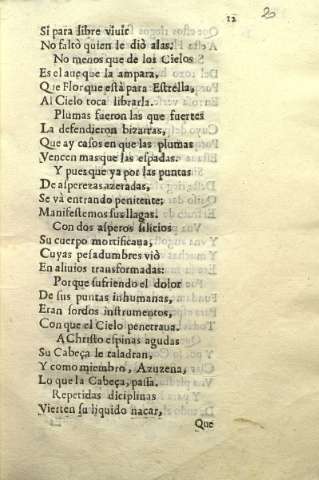 12
20
Si para libre viuir
No faltò quien le diò alas.
No menos que de los Cielos
Es el aue que la ampara,
Que Flor que està para Estrella,
Al Cielo toca librarla.
Plumas fueron las que fuertes
La defendieron bizarras,
Que ay casos en que las plumas
Vencen mas que las espadas.
Y pues que ya por las puntas
De asperezas azeradas,
Se và entrando penitente;
Manifestemos sus llagas.
Con dos asperos silicios
Su cuerpo mortificaua,
Cuyas pesadumbres viò
En aliuios transformadas:
Porque sufriendo el dolor
De sus puntas inhumanas,
Eran sordos instrumentos,
Con que el Cielo penetraua.
A Christo espinas agudas
Su Cabeça le taladran,
Y como miembro, Azuzena,
Lo que la Cabeça, passa.
Repetidas diciplinas
Vierten su liquido nacar,
Que